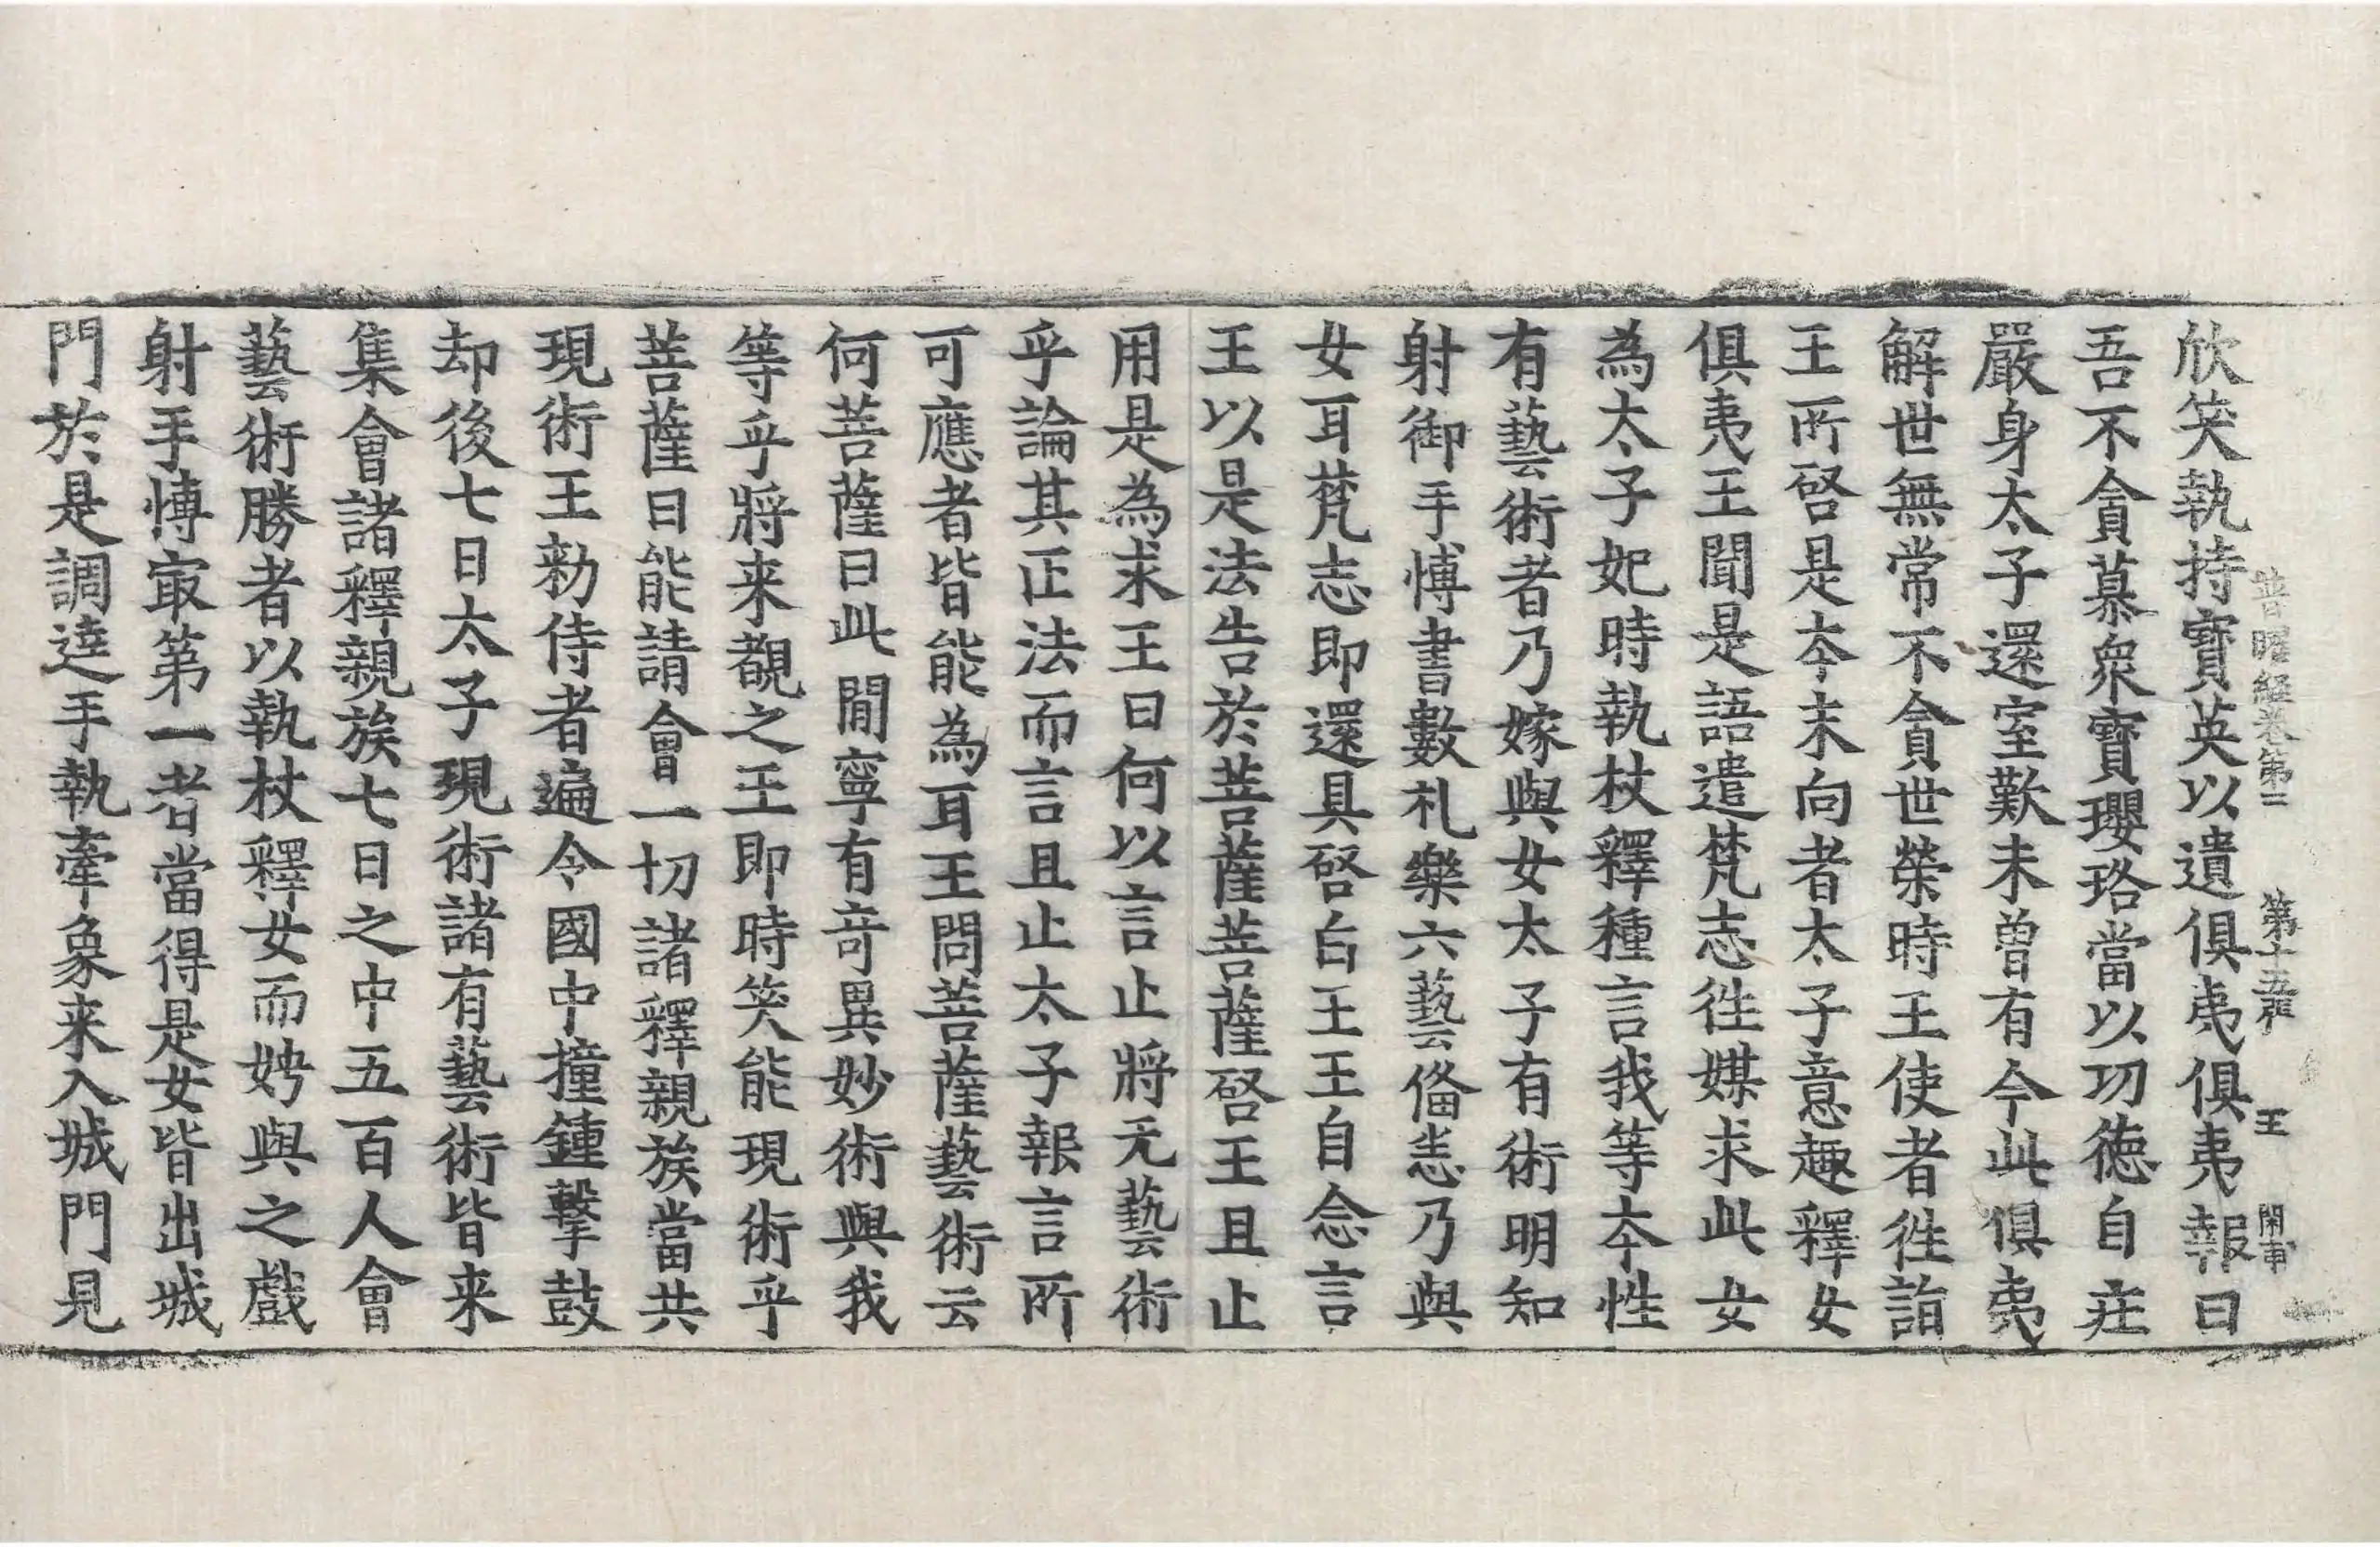 普曜經卷第三 第十五張 王
欣笑執持寶英以遺俱夷俱夷報曰
吾不貪慕衆寶瓔珞當以功徳自莊
嚴身太子還室歎未曾有今此俱夷
解世無常不貪世榮時王使者徃詣
王所啓是夲末向者太子意趣釋女
俱夷王聞是語遣梵志徃媒求此女
為太子妃時執杖釋種言我等夲性
有藝術者乃嫁與女太子有術明知
射御手博書數札樂六藝俻悉乃與
女耳梵志即還具啓白王王自念言
王以是法告於菩薩菩薩啓王且止
用是為求王曰何以言止將无藝術
乎論其正法而言且止太子報言所
可應者皆能為耳王問菩薩藝術云
何菩薩曰此間寧有竒異妙術與我
等乎將来覩之王即時笑能現術乎
菩薩曰能請會一切諸釋親族當共
現術王勑侍者遍令國中撞鍾擊鼓
却後七日太子現術諸有藝術皆来
集會諸釋親族七日之中五百人會
藝術勝者以執杖釋女而娉與之戲
射手博㝡第一者當得是女皆出城
門於是調達手執牽象来入城門見